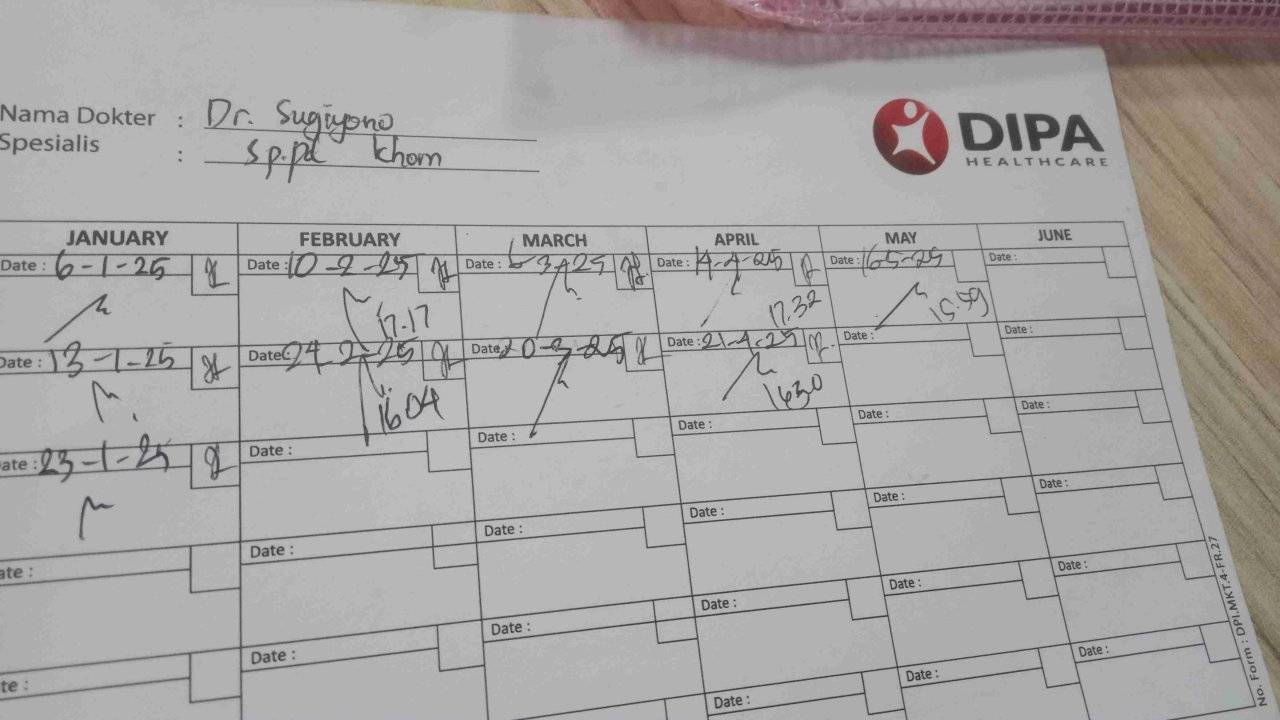 Nama Dokter : Dr. Sugiyono
Spesialis : Sp.pd khom
DIPA
HEALTHCARE
JANUARY FEBRUARY MARCH APRIL MAY JUNE
Date : 6-1-25 Date : 10-2-25 Date : 6-3-25 Date : 14-4-25 Date : 16-5-25 Date :
17.17 17.32 15.59
Date : 13-1-25 Date : 24-2-25 Date : 20-3-25 Date : 21-4-25 Date : Date :
16.04 1630
ate : 23-1-25 Date : Date : Date : Date : Date :
ate : Date : Date : Date : Date : Date :
te : Date : Date : Date : Date : Date :
Date : Date : Date :
No. Form : DPI.MKT.4-FR.27